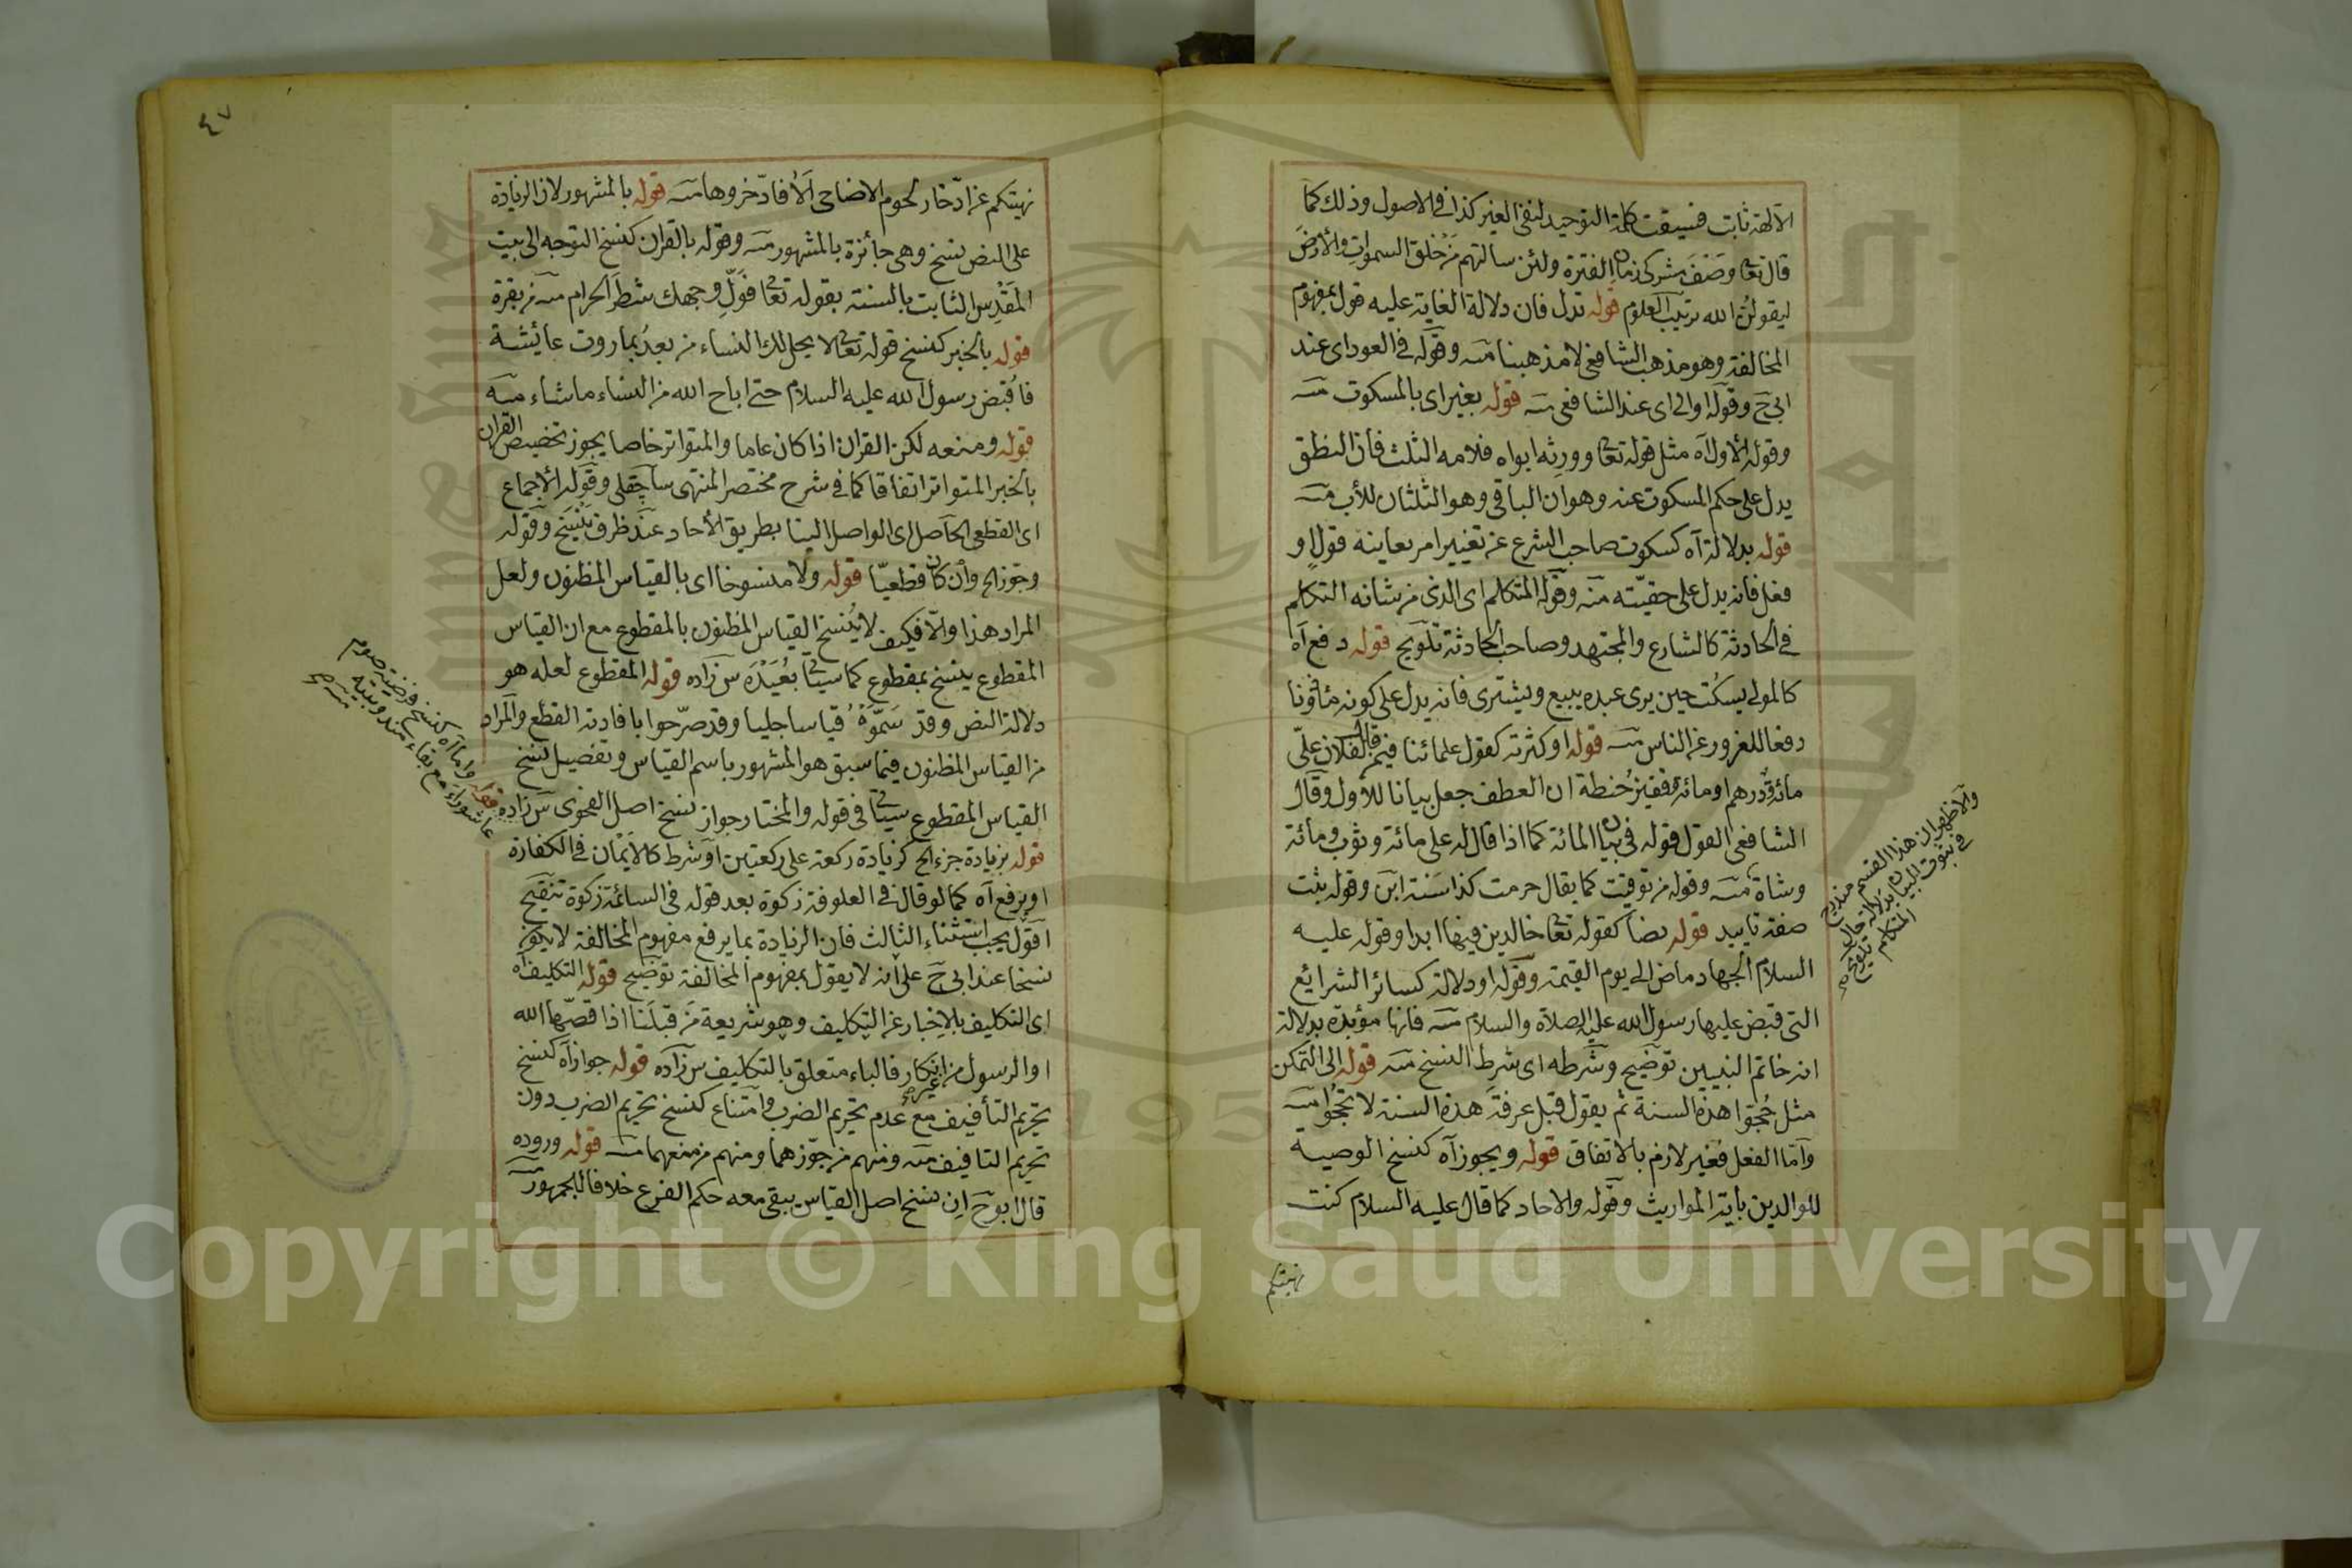 الآلهة ثابت فسيقت كلمة التوحيد لنفى الغير كذا فى الاصول وذلك كما
قال تعا وصف مشركى زمان الفترة ولئن سالتهم من خلق السموات والأرض
ليقولن الله ترتيب العلوم قوله تدل فان دلالة الغاية عليه قول بمفهوم
المخالفة وهو مذهب الشافعى لا مذهبنا منه وقوله فى العود اى عند
ابى ح وقوله اوالى اى عند الشافعى منه قوله بغير اى بالمسكوت منه
وقوله الأول آه مثل قوله تعا وورثه ابواه فلامه الثلث فان النطق
يدل على حكم المسكوت عنه وهو ان الباقى وهو الثلثان للأب منه
قوله بدلالة آه كسكوت صاحب الشرع عن تغيير امر يعاينه قول او
فعل فانه يدل على حقيّته منه وقوله المتكلم اى الذى من شانه التكلم
فى الحادثة كالشارع والمجتهد وصاحب الحادثة تلويح قوله دفع آه
كالمولى يسكت حين يرى عبده يبيع ويشترى فانه يدل على كونه مأذونا
دفعا للغرور عن الناس منه قوله او كثرته كقول علمائنا فيمن قال لفلان علىّ
مائة ودرهم او مائة وقفيز حنطة ان العطف جعل بيانا للاول وقال
الشافعى القول قوله فى بيان المائة كما اذا قال له على مائة وثوب ومائة
وشاة منه وقوله من توقيت كما يقال حرمت كذا سنة ابن وقوله بثت
صفة تابيد قوله نصا كقوله تعا خالدين فيها ابدا وقوله عليه
السلام الجهاد ماض الى يوم القيمة وقوله او دلالة كسائر الشرايع
التى قبض عليها رسول الله عليه الصلاة والسلام منه فانها مؤبدة بدلالة
انه خاتم النبيين توضيح وشرطه اى شرط النسخ منه قوله الى التمكن
مثل حجوا هذه السنة ثم يقول قبل عرفة هذه السنة لا تحجوا منه
وأما الفعل فغير لازم بالاتفاق قوله ويجوز آه كنسخ الوصية
للوالدين بآية المواريث وقوله والاحاد كما قال عليه السلام كنت
نهيتكم
والاظهر ان هذا القسم مندرج
فى ثبوت البيان بدلالة حال
المتكلم
تلويح
٤٧
نهيتكم عن ادّخار لحوم الاضاحى ألا فادّخروها منه قوله بالمشهور لان الزيادة
على النص نسخ وهى جائزة بالمشهور منه وقوله بالقران كنسخ التوجه الى بيت
المقدس الثابت بالسنة بقوله تعا فولّ وجهك شطر الحرام منه من بقرة
قوله بالخبر كنسخ قوله تعا لا يحل لك النساء من بعد بما روت عائشة
ما قبض رسول الله عليه السلام حتى اباح الله من النساء ما شاء منه
قوله ومنعه لكن القران اذا كان عاما والمتواتر خاصا يجوز تخصيص القران
بالخبر المتواتر اتفاقا كما فى شرح مختصر المنتهى ساچقلى وقوله الأجماع
اى القطعى الحاصل اى الواصل الينا بطريق الأحاد عند ظرف ينسخ وقوله
وجوز الخ وأن كان قطعيّا قوله ولا منسوخا اى بالقياس المظنون ولعل
المراد هذا والّا فكيف لا ينسخ القياس المظنون بالمقطوع مع ان القياس
المقطوع ينسخ بمقطوع كما سيئا بعيده س زاده قوله المقطوع لعله هو
دلالة النص وقد سمّوه قياسا جليا وقد صرّحوا بافادته القطع والمراد
من القياس المظنون فيما سبق هو المشهور باسم القياس وتفصيل نسخ
القياس المقطوع سيئا فى قوله والمختار جواز نسخ اصل الفحوى س زاده
قوله بزيادة جزء الخ كزيادة ركعة على ركعتين او شرط كالايمان فى الكفارة
او يرفع آه كما لو قال فى العلوفة زكوة بعد قوله فى السائمة زكوة تنقيح
اقول يجب استثناء الثالث فان الزيادة بما يرفع مفهوم المخالفة لا يكون
نسخا عند ابى ح على انه لا يقول بمفهوم المخالفة توضيح قوله التكليف آه
اى التكليف بلاخبار عن التكليف وهو شريعة من قبلنا اذا قصّها الله
او الرسول من انكار فالباء متعلق بالتكليف س زاده قوله جواز آه كنسخ
تحريم التأفيف مع عدم تحريم الضرب وامتناع كنسخ تحريم الضرب دون
تحريم التافيف منه ومنهم من جوّزهما ومنهم من منعهما منه قوله وروده
قال ابوح ان نسخ اصل القياس يبقى معه حكم الفرع خلافا للجمهور منه
قوله واما آه كنسخ فرضية صوم
عاشوراء مع بقاء مندوبيته
منه
Copyright © King Saud University